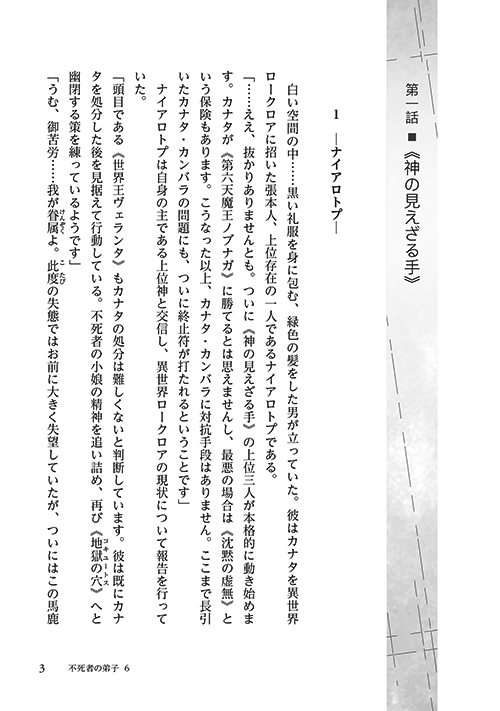 第一話 ■ 《神の見えざる手》
1 ―ナイアロトプ―
白い空間の中……黒い礼服を身に包む、緑色の髪をした男が立っていた。彼はカナタを異世界
ロークロアに招いた張本人、上位存在の一人であるナイアロトプである。
「……ええ、抜かりありませんとも。ついに《神の見えざる手》の上位三人が本格的に動き始めま
す。カナタが《第六天魔王ノブナガ》に勝てるとは思えませんし、最悪の場合は《沈黙の虚無》と
いう保険もあります。こうなった以上、カナタ・カンバラに対抗手段はありません。ここまで長引
いたカナタ・カンバラの問題にも、ついに終止符が打たれるということです」
ナイアロトプは自身の主である上位神と交信し、異世界ロークロアの現状について報告を行って
いた。
「頭目である《世界王ヴェランタ》もカナタの処分は難しくないと判断しています。彼は既にカナ
タを処分した後を見据えて行動している。不死者の小娘の精神を追い詰め、再び《地獄の穴》へと
コキュートス
幽閉する策を練っているようです」
「うむ、御苦労……我が眷属よ。此度の失態ではお前に大きく失望していたが、ついにはこの馬鹿
けんぞく
こたび
3 不死者の弟子 6